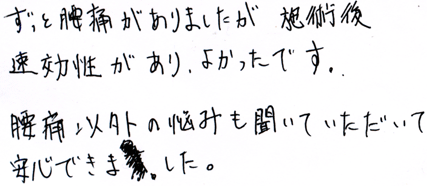 ずっと腰痛がありましたが 施術後
速効性があり、よかったです。
腰痛以外の悩みも聞いていただいて
安心できました。